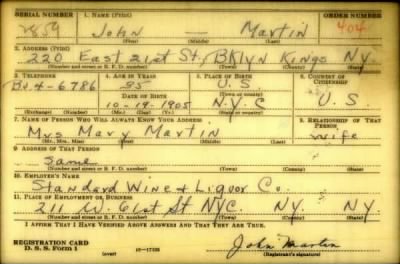 SERIAL NUMBER 1. NAME (Print) ORDER NUMBER
2859 John — Martin 404
(First) (Middle) (Last)
2. ADDRESS (Print)
220 East 21st St., Bklyn Kings N.Y.
(Number and street or R. F. D. number) (Town) (County) (State)
3. TELEPHONE 4. AGE IN YEARS 5. PLACE OF BIRTH 6. COUNTRY OF CITIZENSHIP
Bu. 4-6786 35 U.S
DATE OF BIRTH (Town or county)
10-19-1905 N.Y.C U.S.
(Mo.) (Day) (Yr.) (State or country)
7. NAME OF PERSON WHO WILL ALWAYS KNOW YOUR ADDRESS 8. RELATIONSHIP OF THAT PERSON
Mrs Mary Martin wife
(Mr., Mrs., Miss) (First) (Middle) (Last)
9. ADDRESS OF THAT PERSON
same
(Number and street or R. F. D. number) (Town) (County) (State)
10. EMPLOYER'S NAME
Standard Wine & Liquor Co.
11. PLACE OF EMPLOYMENT OR BUSINESS
211 W. 61st St NYC. NY. NY
(Number and street or R. F. D. number) (Town) (County) (State)
I AFFIRM THAT I HAVE VERIFIED ABOVE ANSWERS AND THAT THEY ARE TRUE.
REGISTRATION CARD John Martin
D. S. S. Form 1 (over) (Registrant's signature)